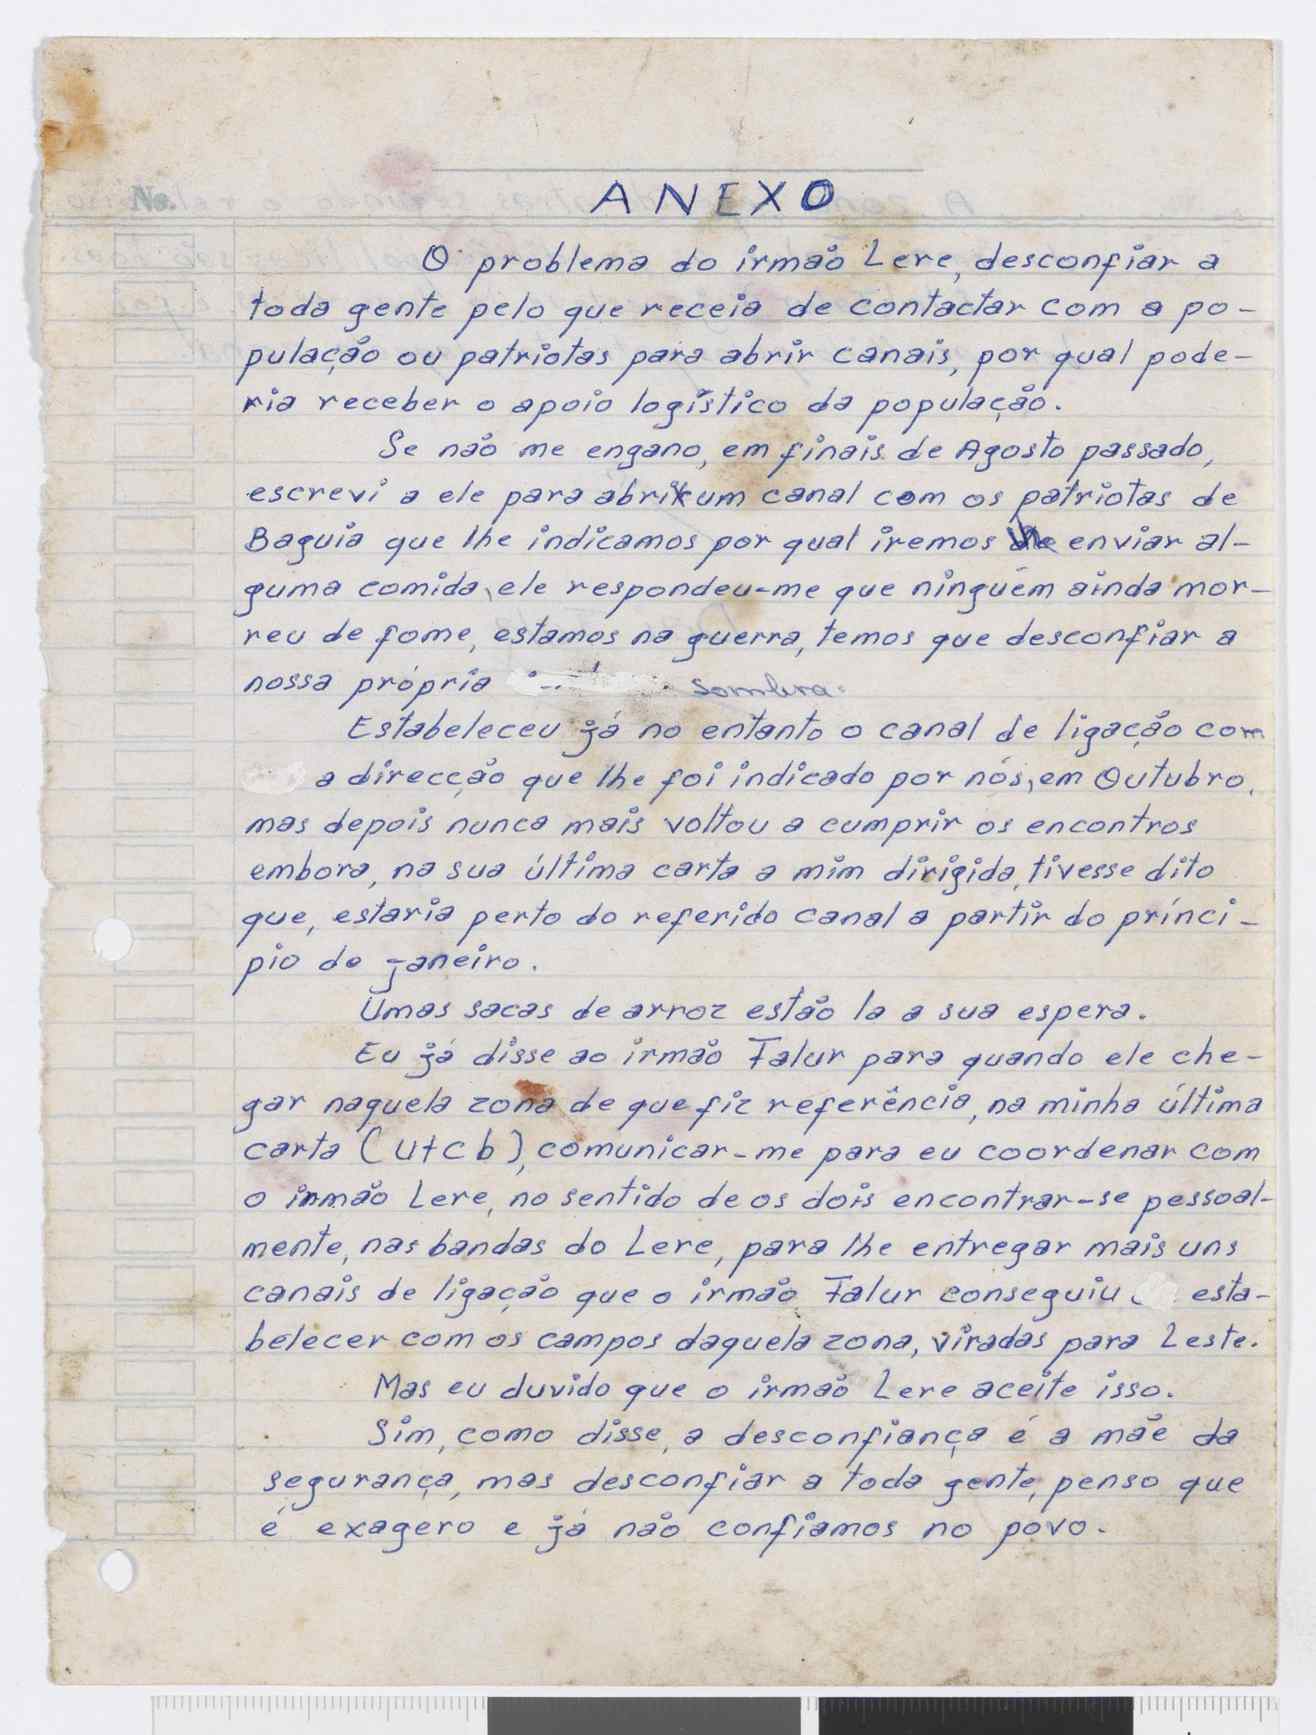 No.
ANEXO
O problema do irmão Lere, desconfiar a
toda gente pelo que receia de contactar com a po-
pulação ou patriotas para abrir canais, por qual pode-
ria receber o apoio logístico da população.
Se não me engano, em finais de Agosto passado,
escrevi a ele para abrir um canal com os patriotas de
Baguia que lhe indicamos por qual iremos lhe enviar al-
guma comida, ele respondeu-me que ninguém ainda mor-
reu de fome, estamos na guerra, temos que desconfiar a
nossa própria sombra.
Estabeleceu já no entanto o canal de ligação com
a direcção que lhe foi indicado por nós, em Outubro,
mas depois nunca mais voltou a cumprir os encontros
embora, na sua última carta a mim dirigida, tivesse dito
que, estaria perto do referido canal a partir do prínci-
pio de Janeiro.
Umas sacas de arroz estão la a sua espera.
Eu já disse ao irmão Falur para quando ele che-
gar naquela zona de que fiz referência, na minha última
carta (Utcb), comunicar-me para eu coordenar com
o irmão Lere, no sentido de os dois encontrar-se pessoal-
mente, nas bandas do Lere, para lhe entregar mais uns
canais de ligação que o irmão Falur conseguiu esta-
belecer com os campos daquela zona, viradas para Leste.
Mas eu duvido que o irmão Lere aceite isso.
Sim, como disse, a desconfiança é a mãe da
segurança, mas desconfiar a toda gente, penso que
é exagero e já não confiamos no povo.